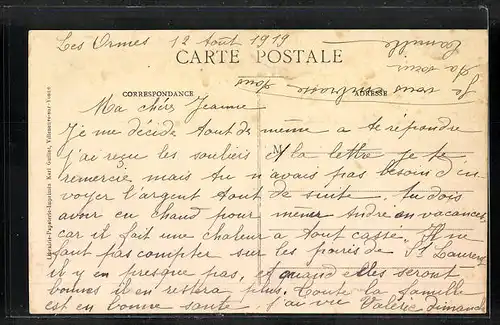 Les Ormes 12 Aout 1919
CARTE POSTALE
CORRESPONDANCE
ADRESSE
Ma chère Jeanne
Je me décide tout de même a te répondre
j'ai reçu les souliers et la lettre je te
remercie mais tu n'avais pas besoin d'en
voyer l'argent tout de suite. tu dois
avoir eu chaud pour mener André en vacances,
car il fait une chaleur a tout casse. Il ne
faut pas compter sur les poires de St Laurent
il y en presque pas, et quand elles seront
bonnes il en restera plus. Toute la famille
est en bonne santé j'ai vue Valérie dimanche
Je vous embrasse tous
Ta sœur
Camille
Librairie-Papeterie-Imprimerie Karl Guillot, Villeneuve-sur-Yonne